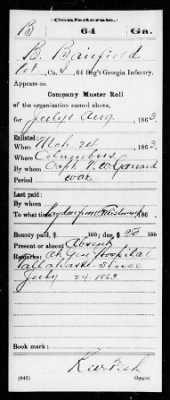 Confederate.
B 64 Ga.
B. Banfield
Pvt, Co. , 64 Reg't Georgia Infantry.
Appears on
Company Muster Roll
of the organization named above,
for July & Aug, 1863.
Enlisted:
When Mch. 24, 1863
Where Columbus
By whom Capt.
Period war
Last paid:
By whom
To what time
Bounty paid, $ 100; due $ 50 100
Present or absent Absent
Remarks: at Gen Hospital
Tallahassee since
July 24. 1863
Book mark:
(642) Copyist.